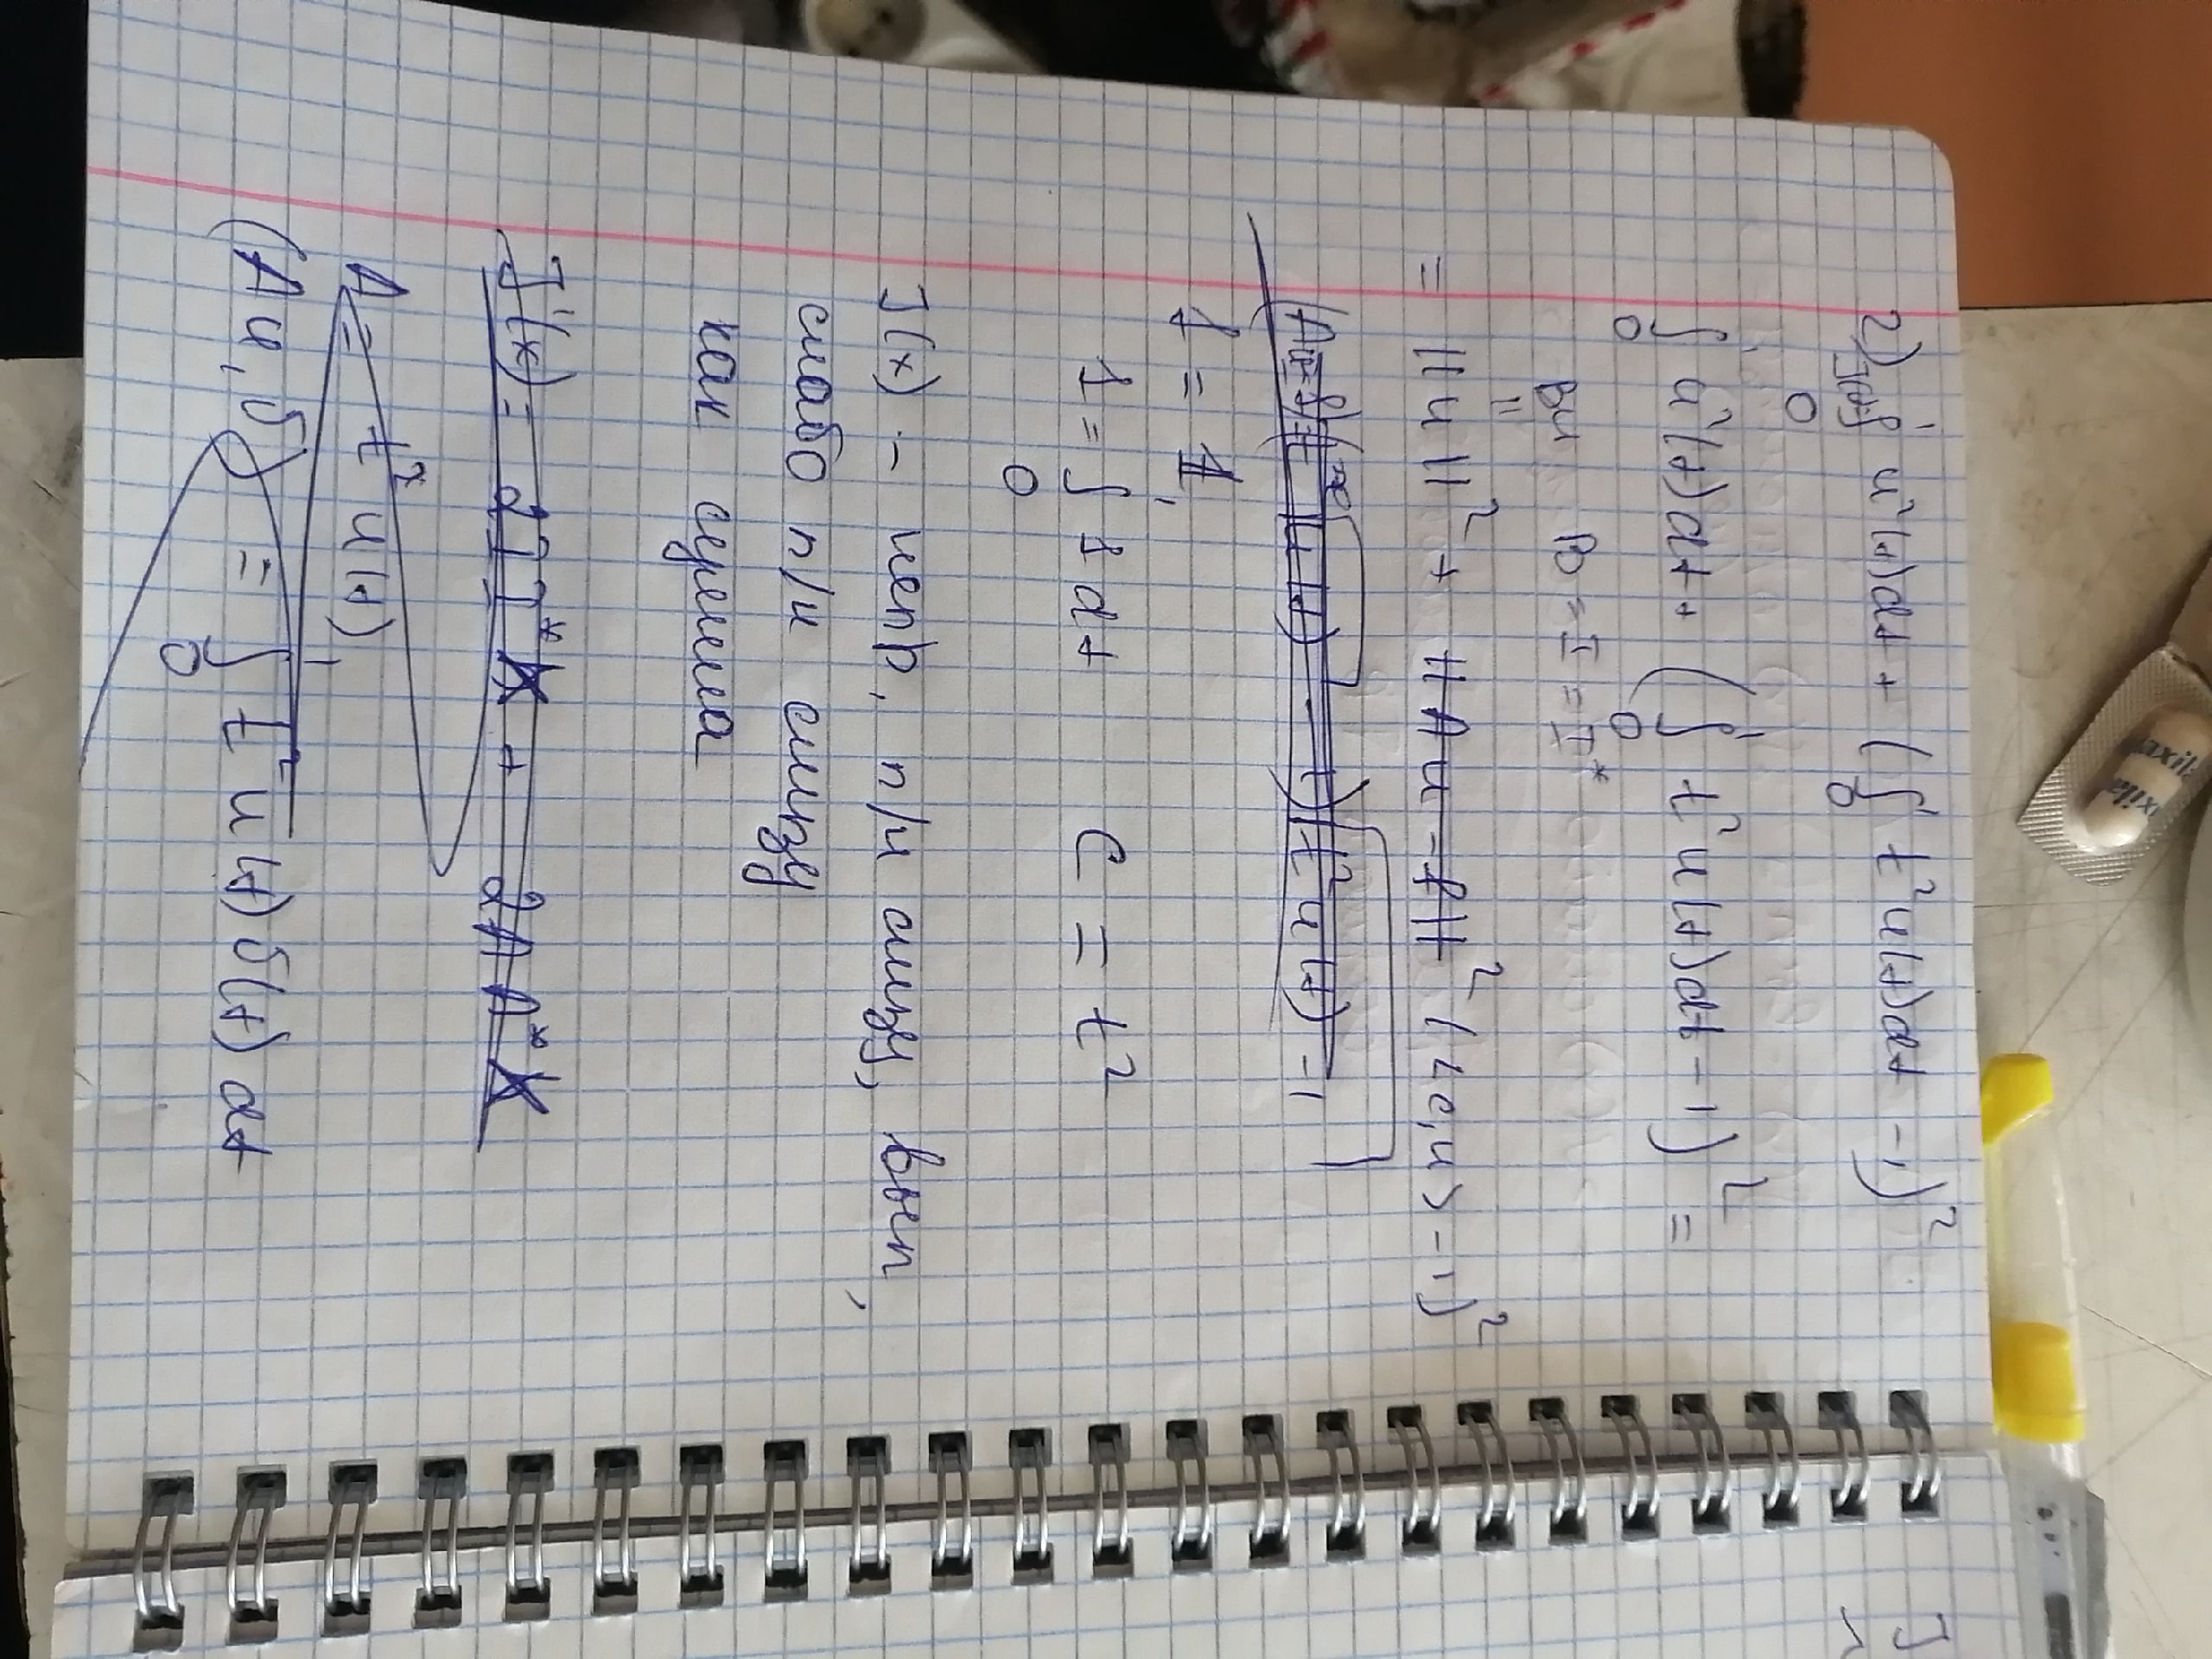 2) J(u)= ∫₀¹ u²(t)dt + (∫₀¹ t²u(t)dt - 1)²
∫₀¹ u²(t)dt + (∫₀¹ t²u(t)dt - 1)² =
Bu B = I = I*
= ||u||² + ||Au - f||² (<c,u> - 1)²
f = 1
1 = ∫₀¹ 1 dt C = t²
J(x) - непр, п/н снизу, вып,
слабо п/н снизу
как сумма
J'(x) = 2II*x + 2AA*x
A = t² u(t)
(Au, v) = ∫₀¹ t² u(t) v(t) dt
xila